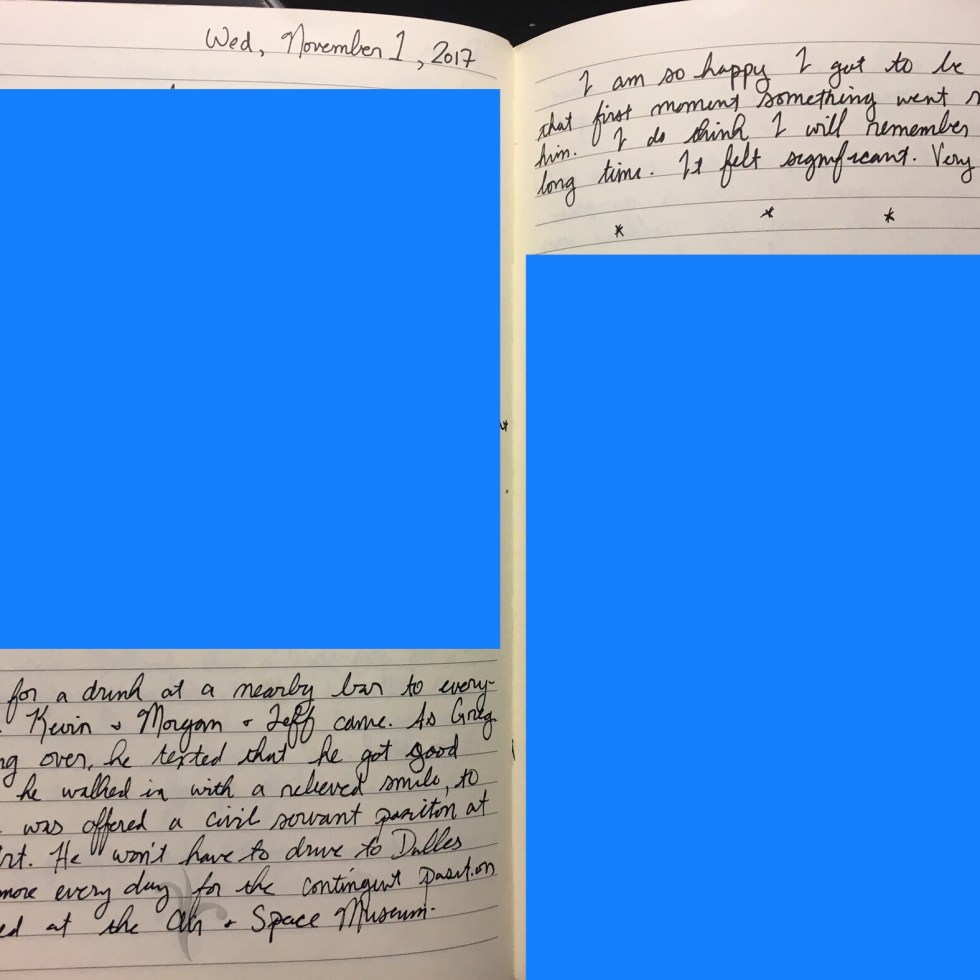 Wed, November 1, 2017
for a drink at a nearby bar to every-
Kevin + Morgan + Jeff came. As Greg
ng over, he texted that he got good
he walked in with a relieved smile, to
was offered a civil servant position at
He won't have to drive to Dulles
more every day for the contingent position
ed at the Air + Space Museum.
I am so happy I got to be
that first moment something went r
him. I do think I will remember
long time. It felt significant. Very
* * *